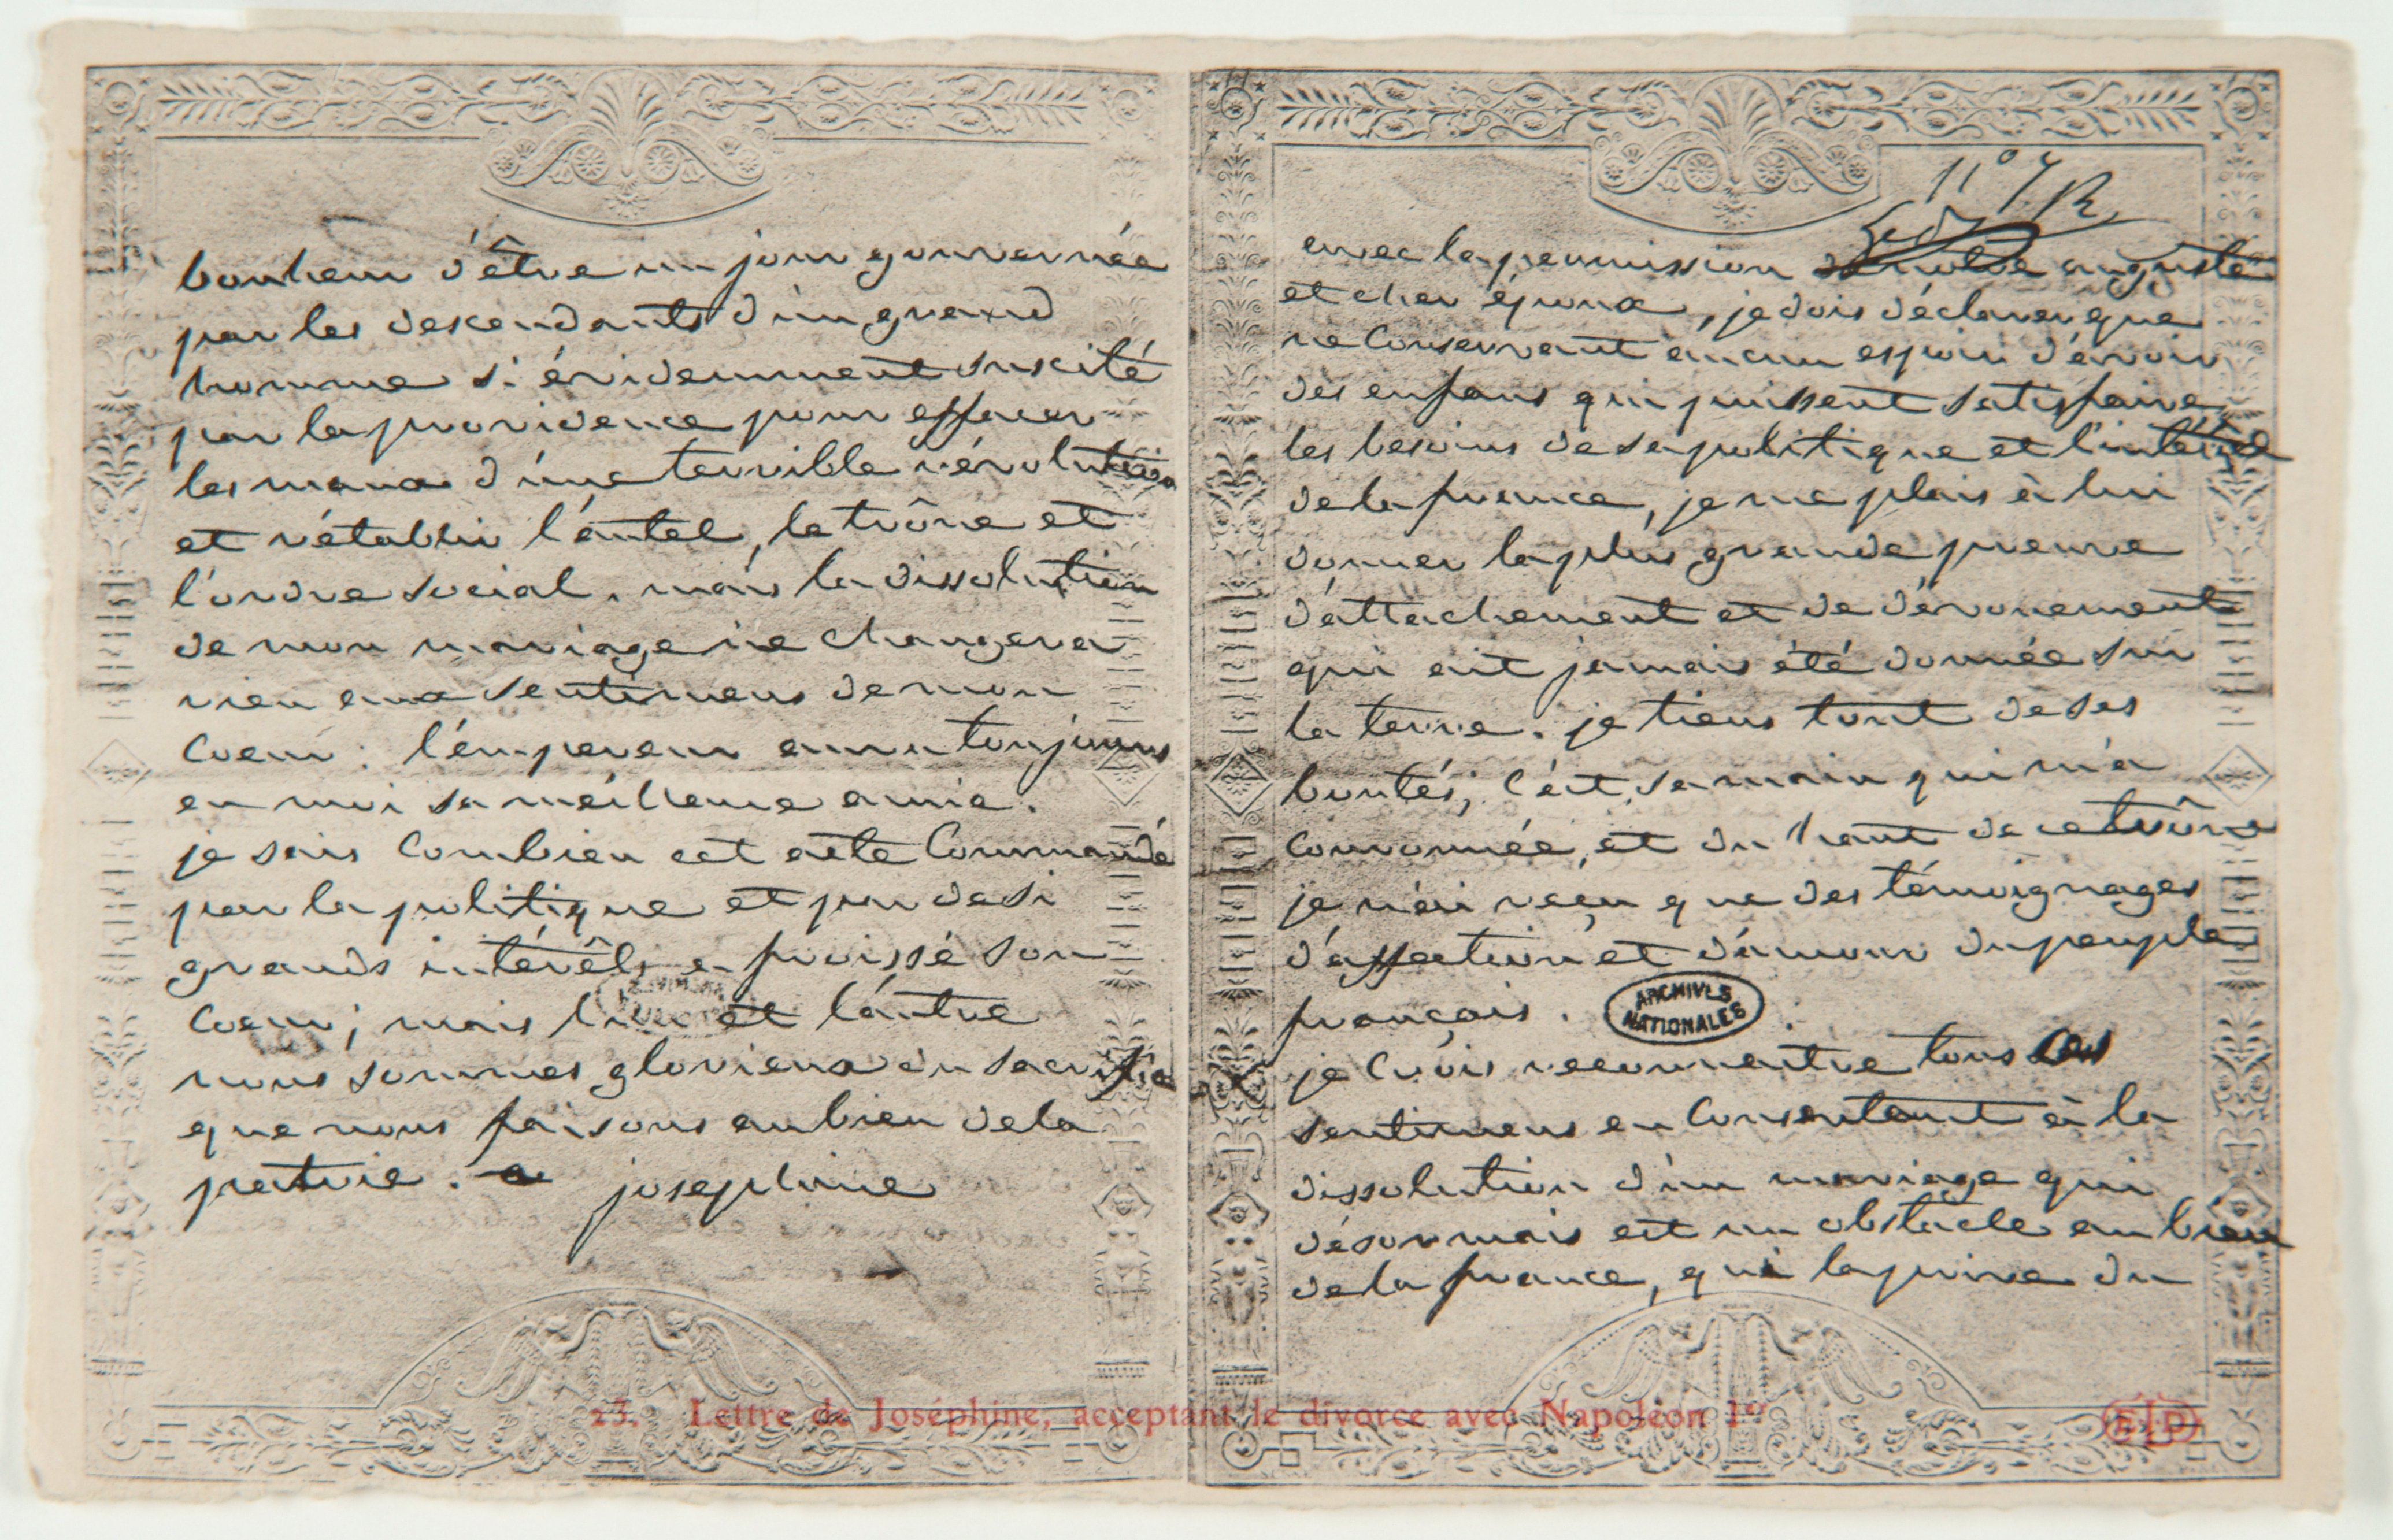 avec la permission de notre auguste
et cher époux, je dois déclarer que
ne conservant aucun espoir d'avoir
des enfans qui puissent satisfaire
les besoins de sa politique et l'intérêt
de la france, je me plais à lui
donner la plus grande preuve
d'attachement et de dévouement
qui ait jamais été donnée sur
la terre. je tiens tout de ses
bontés; c'est sa main qui m'a
couronnée, et du haut de ce trône
je n'ai reçu que des témoignages
d'affection et d'amour du peuple
français.
ARCHIVES
NATIONALES
je crois reconnaitre tous ces
sentimens en consentant à la
dissolution d'un mariage qui
désormais est un obstacle au bien
de la france, qui la prive du
bonheur d'être un jour gouvernée
par les descendants d'un grand
homme si évidemment suscité
par la providence pour effacer
les maux d'une terrible révolution
et rétablir l'autel, le trône et
l'ordre social. mais la dissolution
de mon mariage ne changera
rien aux sentimens de mon
coeur: l'empereur aura toujours
en moi sa meilleure amie.
je sais combien cet acte commandé
par la politique et par de si
grands intérêts a froissé son
coeur; mais l'un et l'autre
nous sommes glorieux du sacrifice
que nous faisons au bien de la
patrie. josephine
23. Lettre de Joséphine, acceptant le divorce avec Napoléon Iᵉʳ
ELD